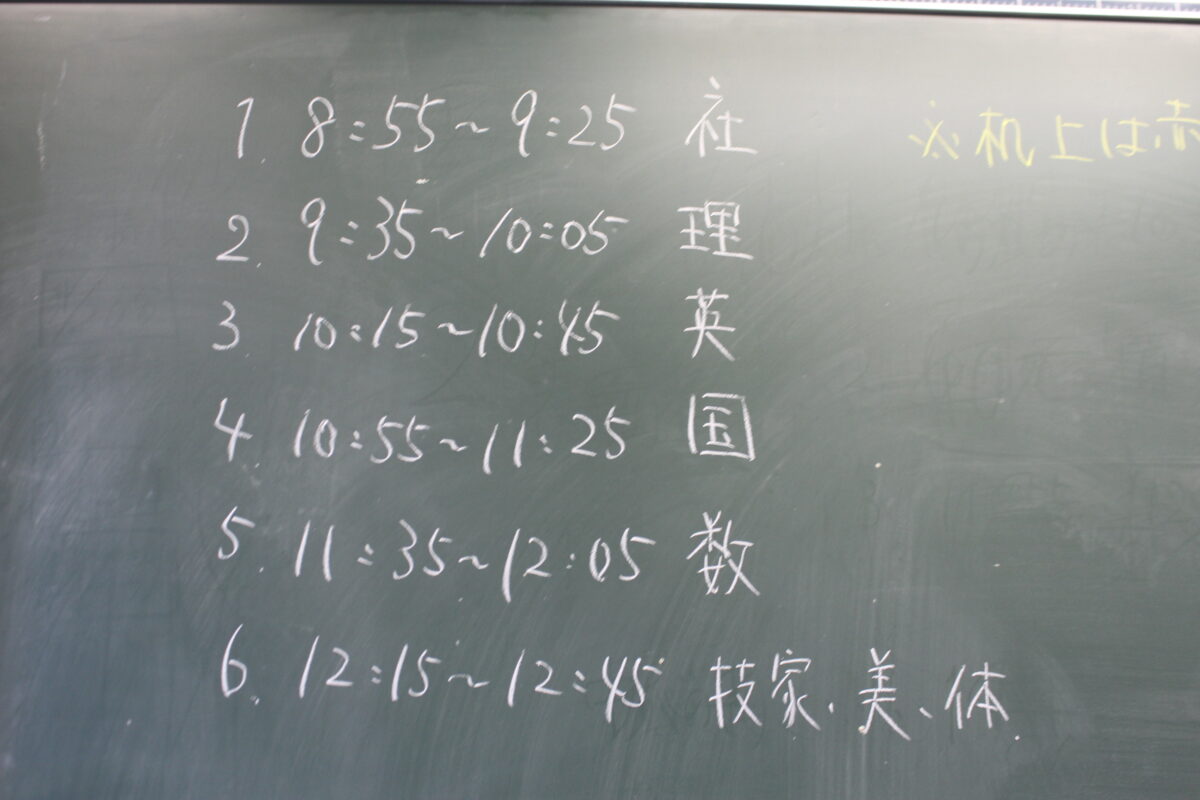 1. 8:55~9:25 社
※机上は赤
2. 9:35~10:05 理
3. 10:15~10:45 英
4. 10:55~11:25 国
5. 11:35~12:05 数
6. 12:15~12:45 技家、美、体